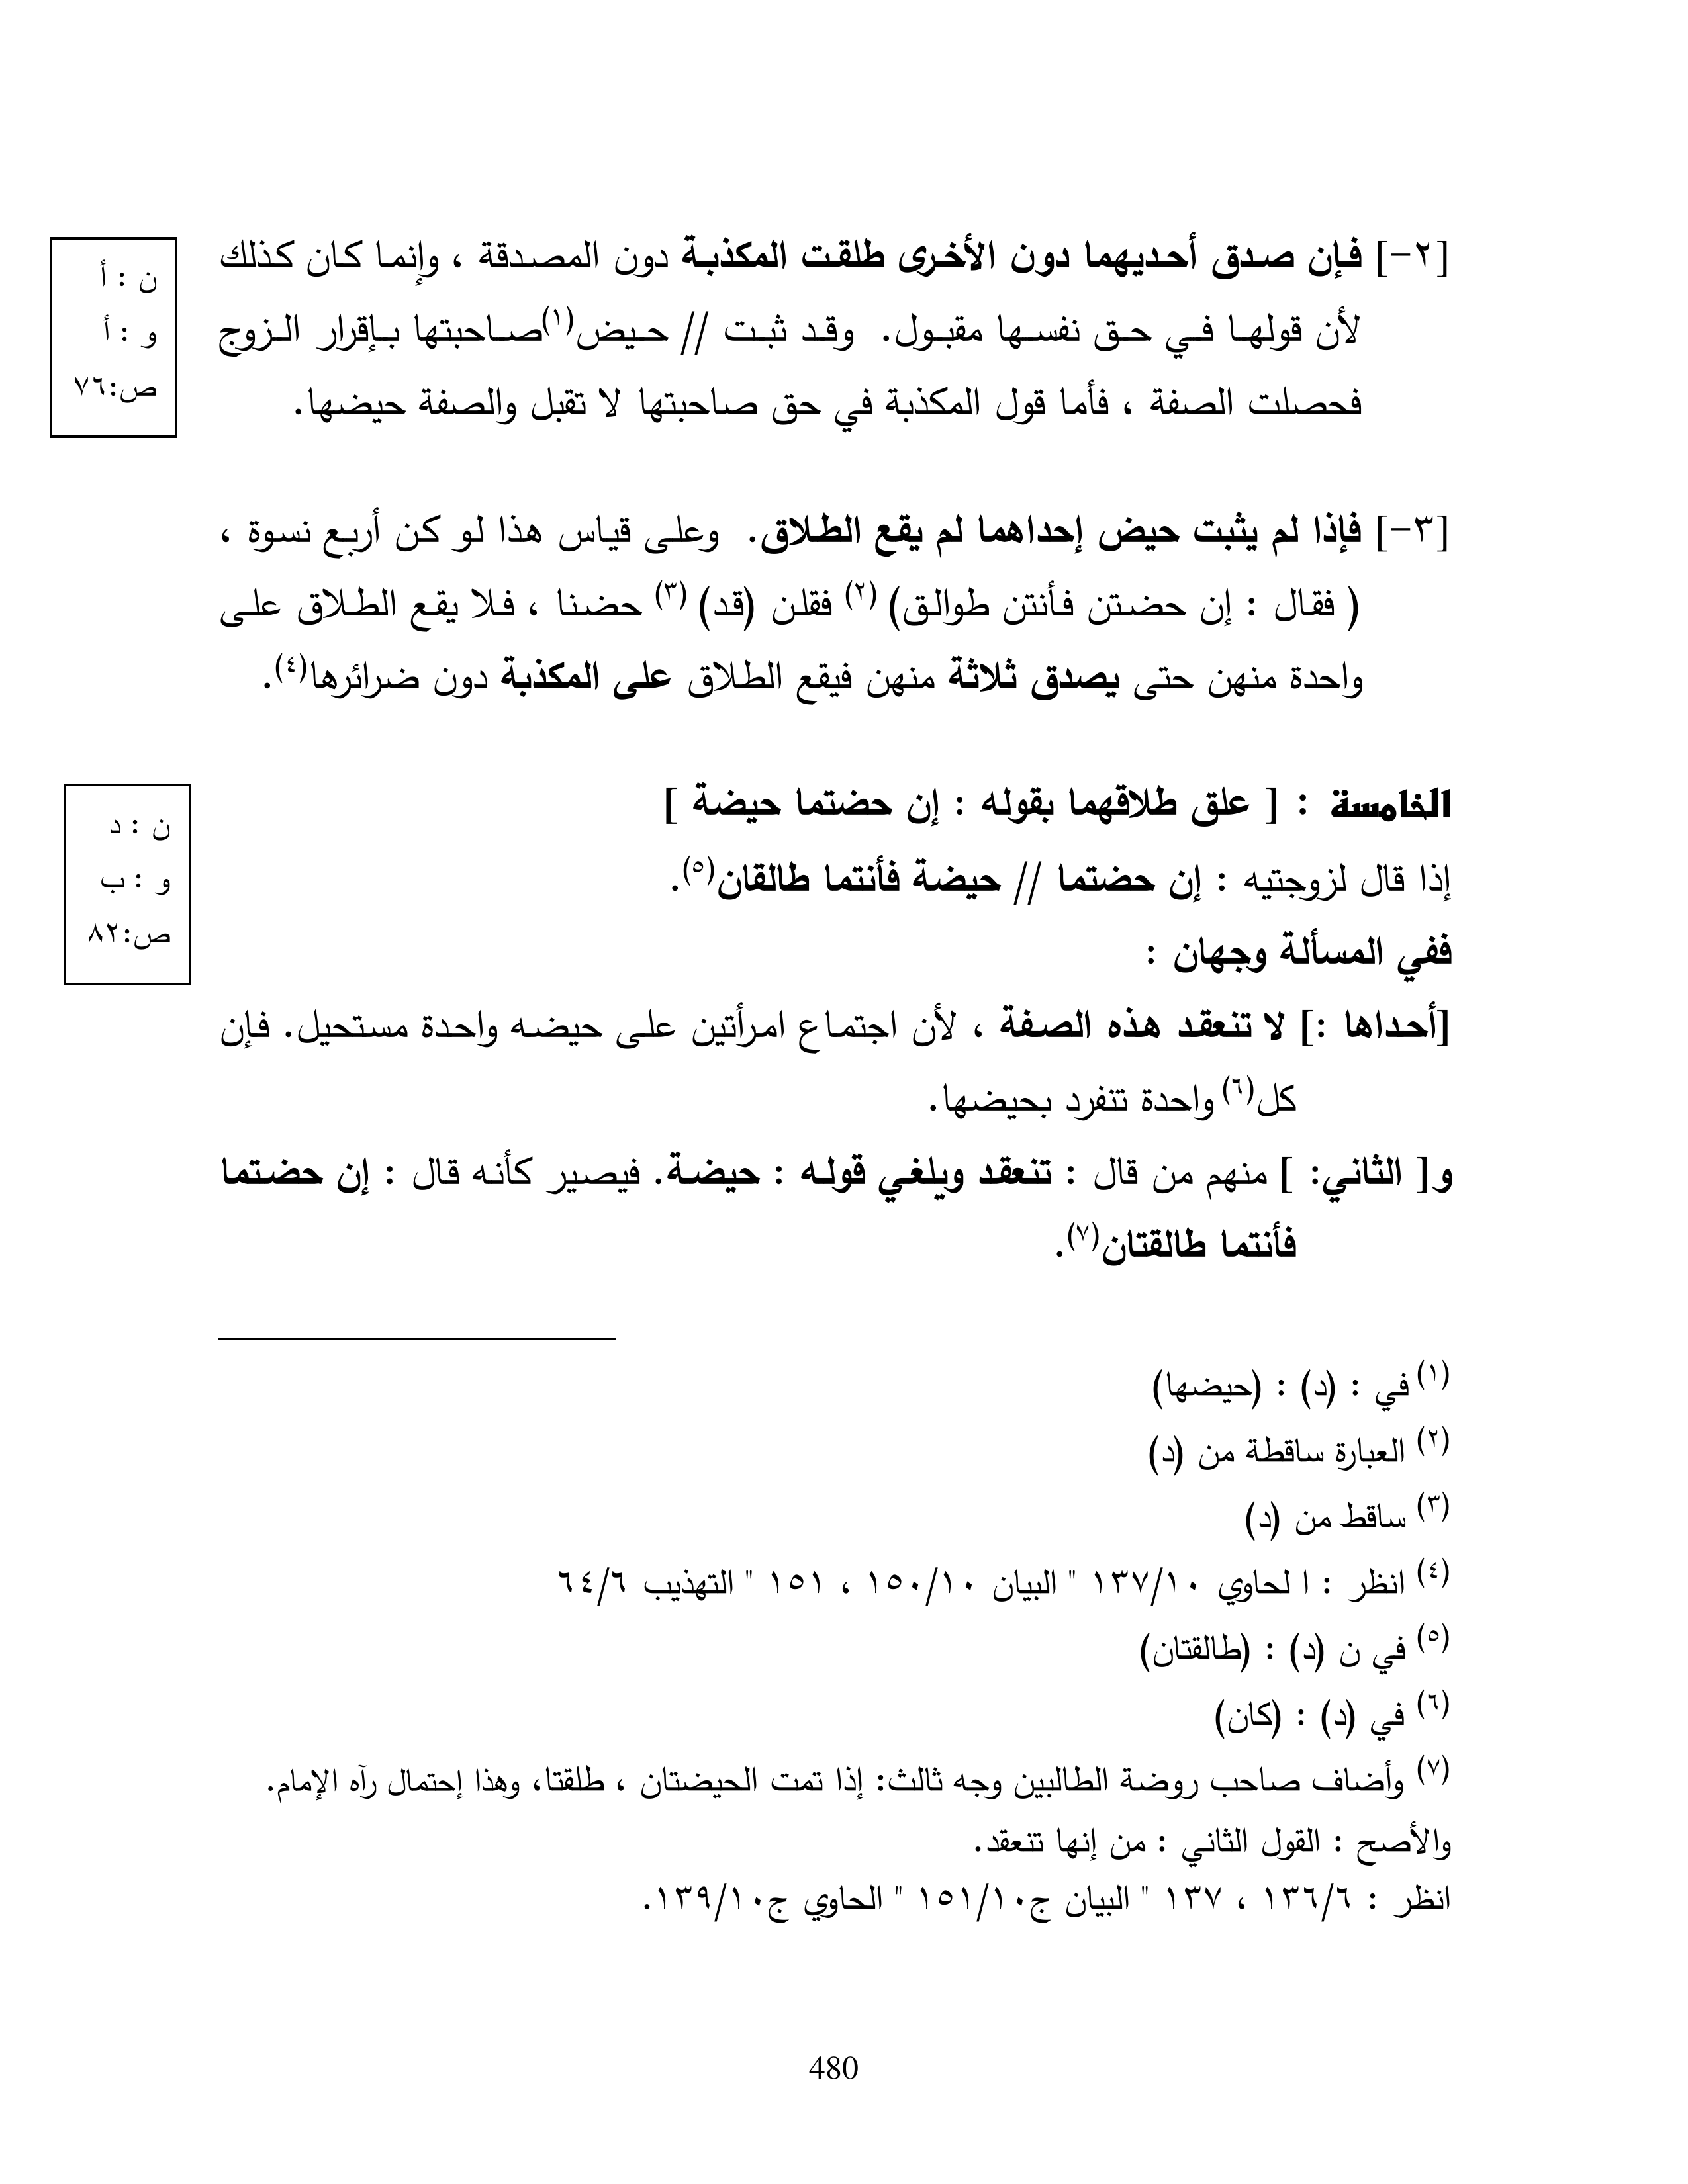 [٢-] فإن صدق أحديهما دون الأخرى طلقت المكذبة دون المصدقة ، وإنما كان كذلك
لأن قولها في حق نفسها مقبول. وقد ثبت // حيض(١)صاحبتها بإقرار الزوج
فحصلت الصفة ، فأما قول المكذبة في حق صاحبتها لا تقبل والصفة حيضها.
ن : أ
و : أ
ص:٧٦
[٣-] فإذا لم يثبت حيض إحداهما لم يقع الطلاق. وعلى قياس هذا لو كن أربع نسوة ،
( فقال : إن حضتن فأنتن طوالق) (٢) فقلن (قد) (٣) حضنا ، فلا يقع الطلاق على
واحدة منهن حتى يصدق ثلاثة منهن فيقع الطلاق على المكذبة دون ضرائرها(٤).
الخامسة : [ علق طلاقهما بقوله : إن حضتما حيضة ]
إذا قال لزوجتيه : إن حضتما // حيضة فأنتما طالقان(٥).
ن : د
و : ب
ص:٨٢
ففي المسألة وجهان :
[أحداها :] لا تنعقد هذه الصفة ، لأن اجتماع امرأتين على حيضه واحدة مستحيل. فإن
كل(٦) واحدة تنفرد بحيضها.
و[ الثاني: ] منهم من قال : تنعقد ويلغي قوله : حيضة. فيصير كأنه قال : إن حضتما
فأنتما طالقتان(٧).
(١) في : (د) : (حيضها)
(٢) العبارة ساقطة من (د)
(٣) ساقط من (د)
(٤) انظر : ا لحاوي ١٣٧/١٠ " البيان ١٥٠/١٠ ، ١٥١ " التهذيب ٦٤/٦
(٥) في ن (د) : (طالقتان)
(٦) في (د) : (كان)
(٧) وأضاف صاحب روضة الطالبين وجه ثالث: إذا تمت الحيضتان ، طلقتا، وهذا إحتمال رآه الإمام.
والأصح : القول الثاني : من إنها تنعقد.
انظر : ١٣٦/٦ ، ١٣٧ " البيان ج١٥١/١٠ " الحاوي ج١٣٩/١٠.
480